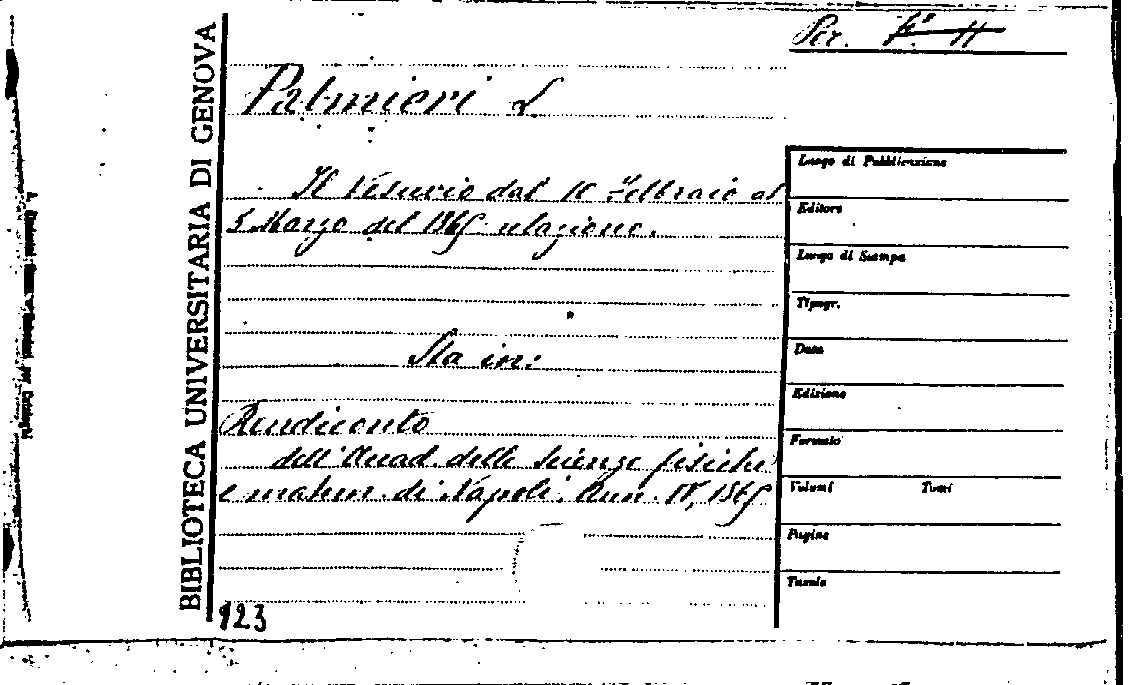 Per.
Palmieri L
Il Vesuvio dal 10 Febbraio al
5 Marzo del 1865 relazione.
Sta in:
Rendiconto
dell'Accad. delle Scienze fisiche
e matem. di Napoli. Ann. IV, 1865
923
BIBLIOTECA UNIVERSITARIA DI GENOVA
Luogo di Pubblicazione
Editore
Luogo di Stampa
Tipogr.
Data
Edizione
Formato
Volumi Tomi
Pagine
Tavole